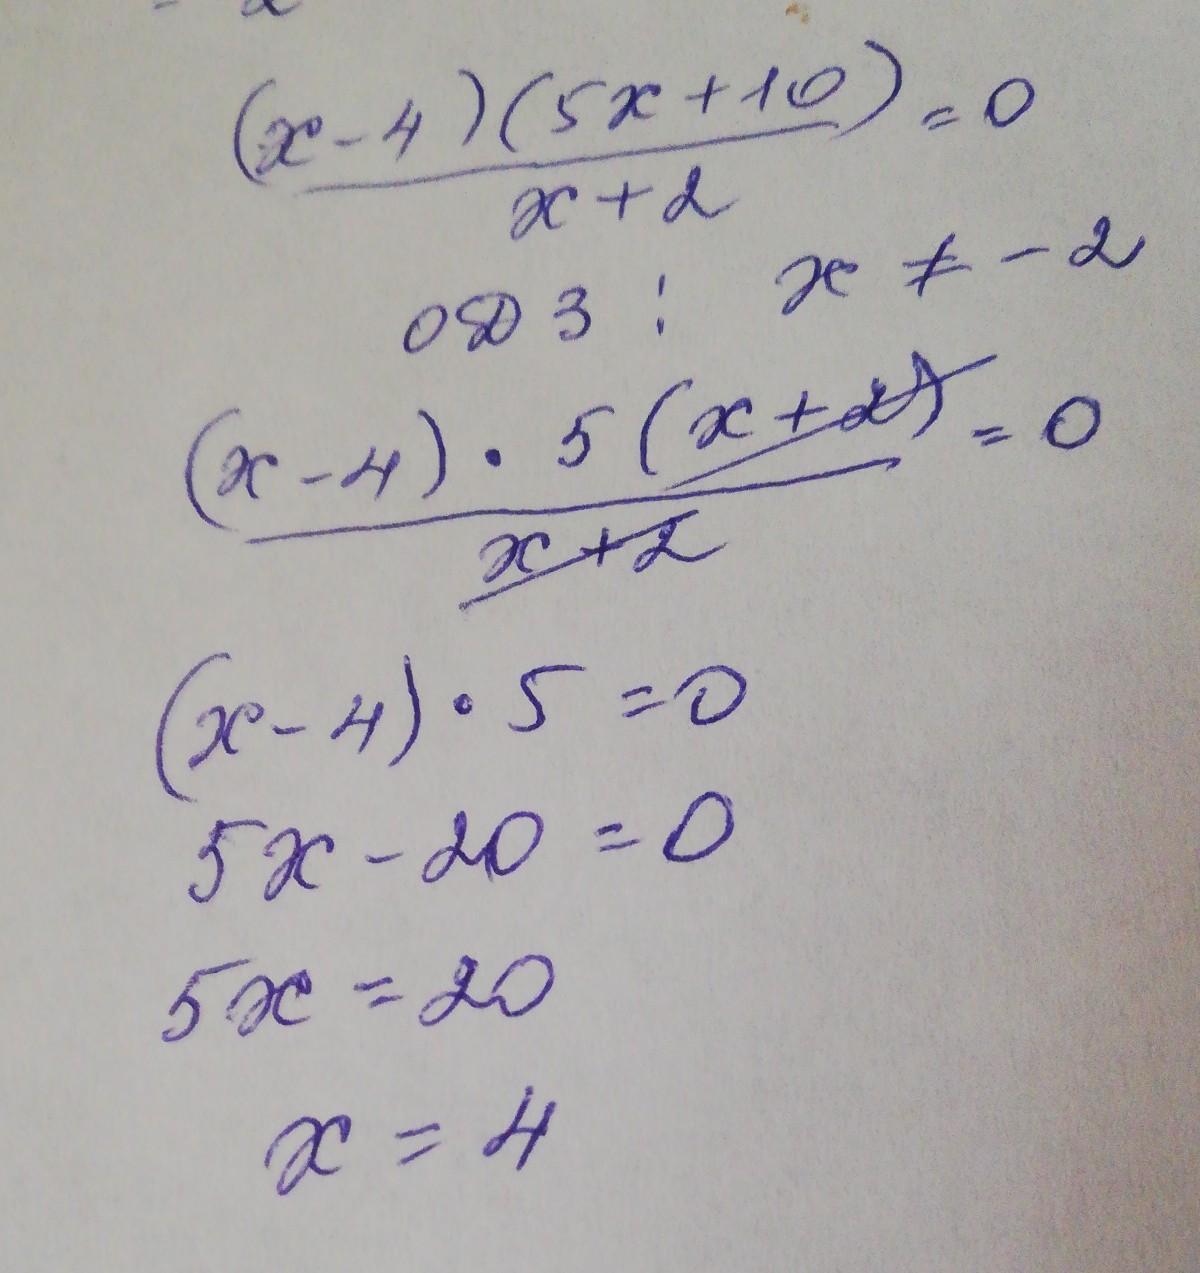 (x-4)(5x+10)/x+2 = 0
ОДЗ: x ≠ -2
(x-4)·5(x+2)/x+2 = 0
(x-4)·5=0
5x-20=0
5x=20
x=4